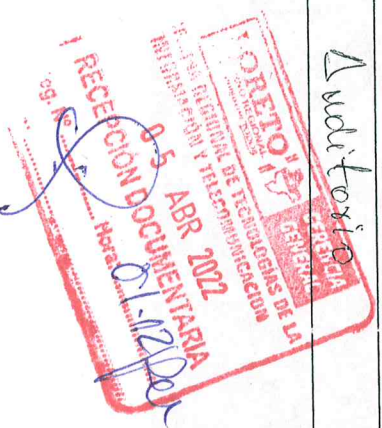 Auditorio
LORETO
GERENCIA
GENERAL
REGIONAL DE TECNOLOGIAS DE LA
INFORMACION Y TELECOMUNICACION
05 ABR 2022
RECEPCIÓN DOCUMENTARIA
Reg. Nº Hora